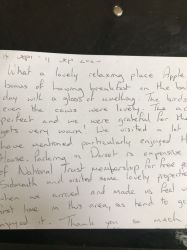 What a lovely relaxing place Apple
bonus of having breakfast on the
day with a glass of The birds
even the cows were lovely. The
perfect and we were grateful for the
gets very warm! We visited a lot
have mentioned particularly enjoyed
House. Parking in Dorset is expensive
of National Trust membership for free
Sidmouth and visited some lovely
when we arrived and made us feel
first time in this area, as tend to go
enjoyed it. Thank you so much